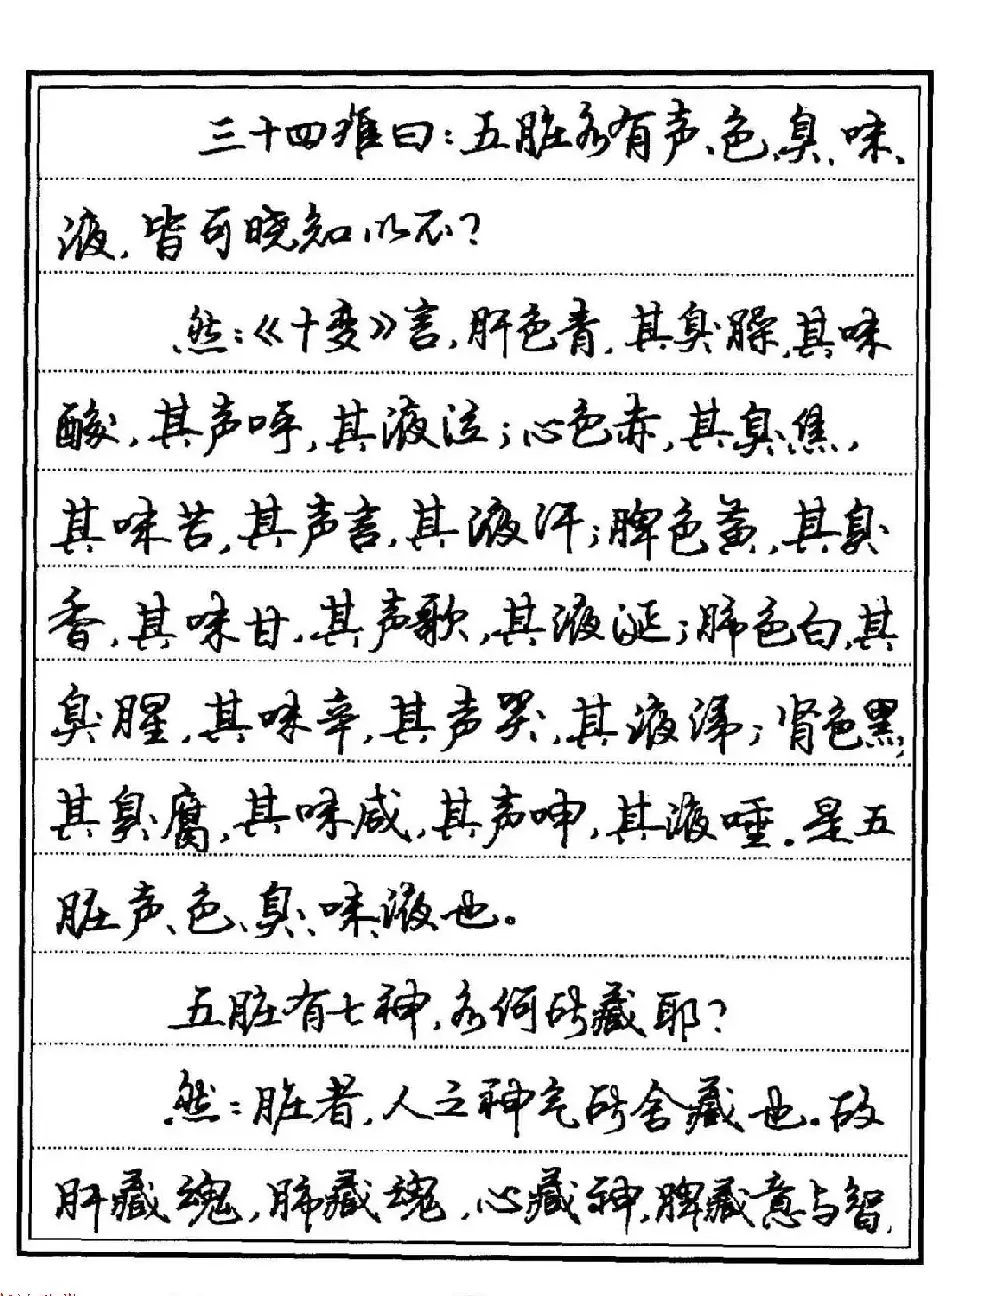 三十四难曰：五脏各有声、色、臭、味、
液，皆可晓知以不？
然：《十变》言，肝色青，其臭臊，其味
酸，其声呼，其液泣；心色赤，其臭焦，
其味苦，其声言，其液汗；脾色黄，其臭
香，其味甘，其声歌，其液涎；肺色白，其
臭腥，其味辛，其声哭，其液涕；肾色黑，
其臭腐，其味咸，其声呻，其液唾。是五
脏声、色、臭、味、液也。
五脏有七神，各何所藏耶？
然：脏者，人之神气所舍藏也。故
肝藏魂，肺藏魄，心藏神，脾藏意与智，